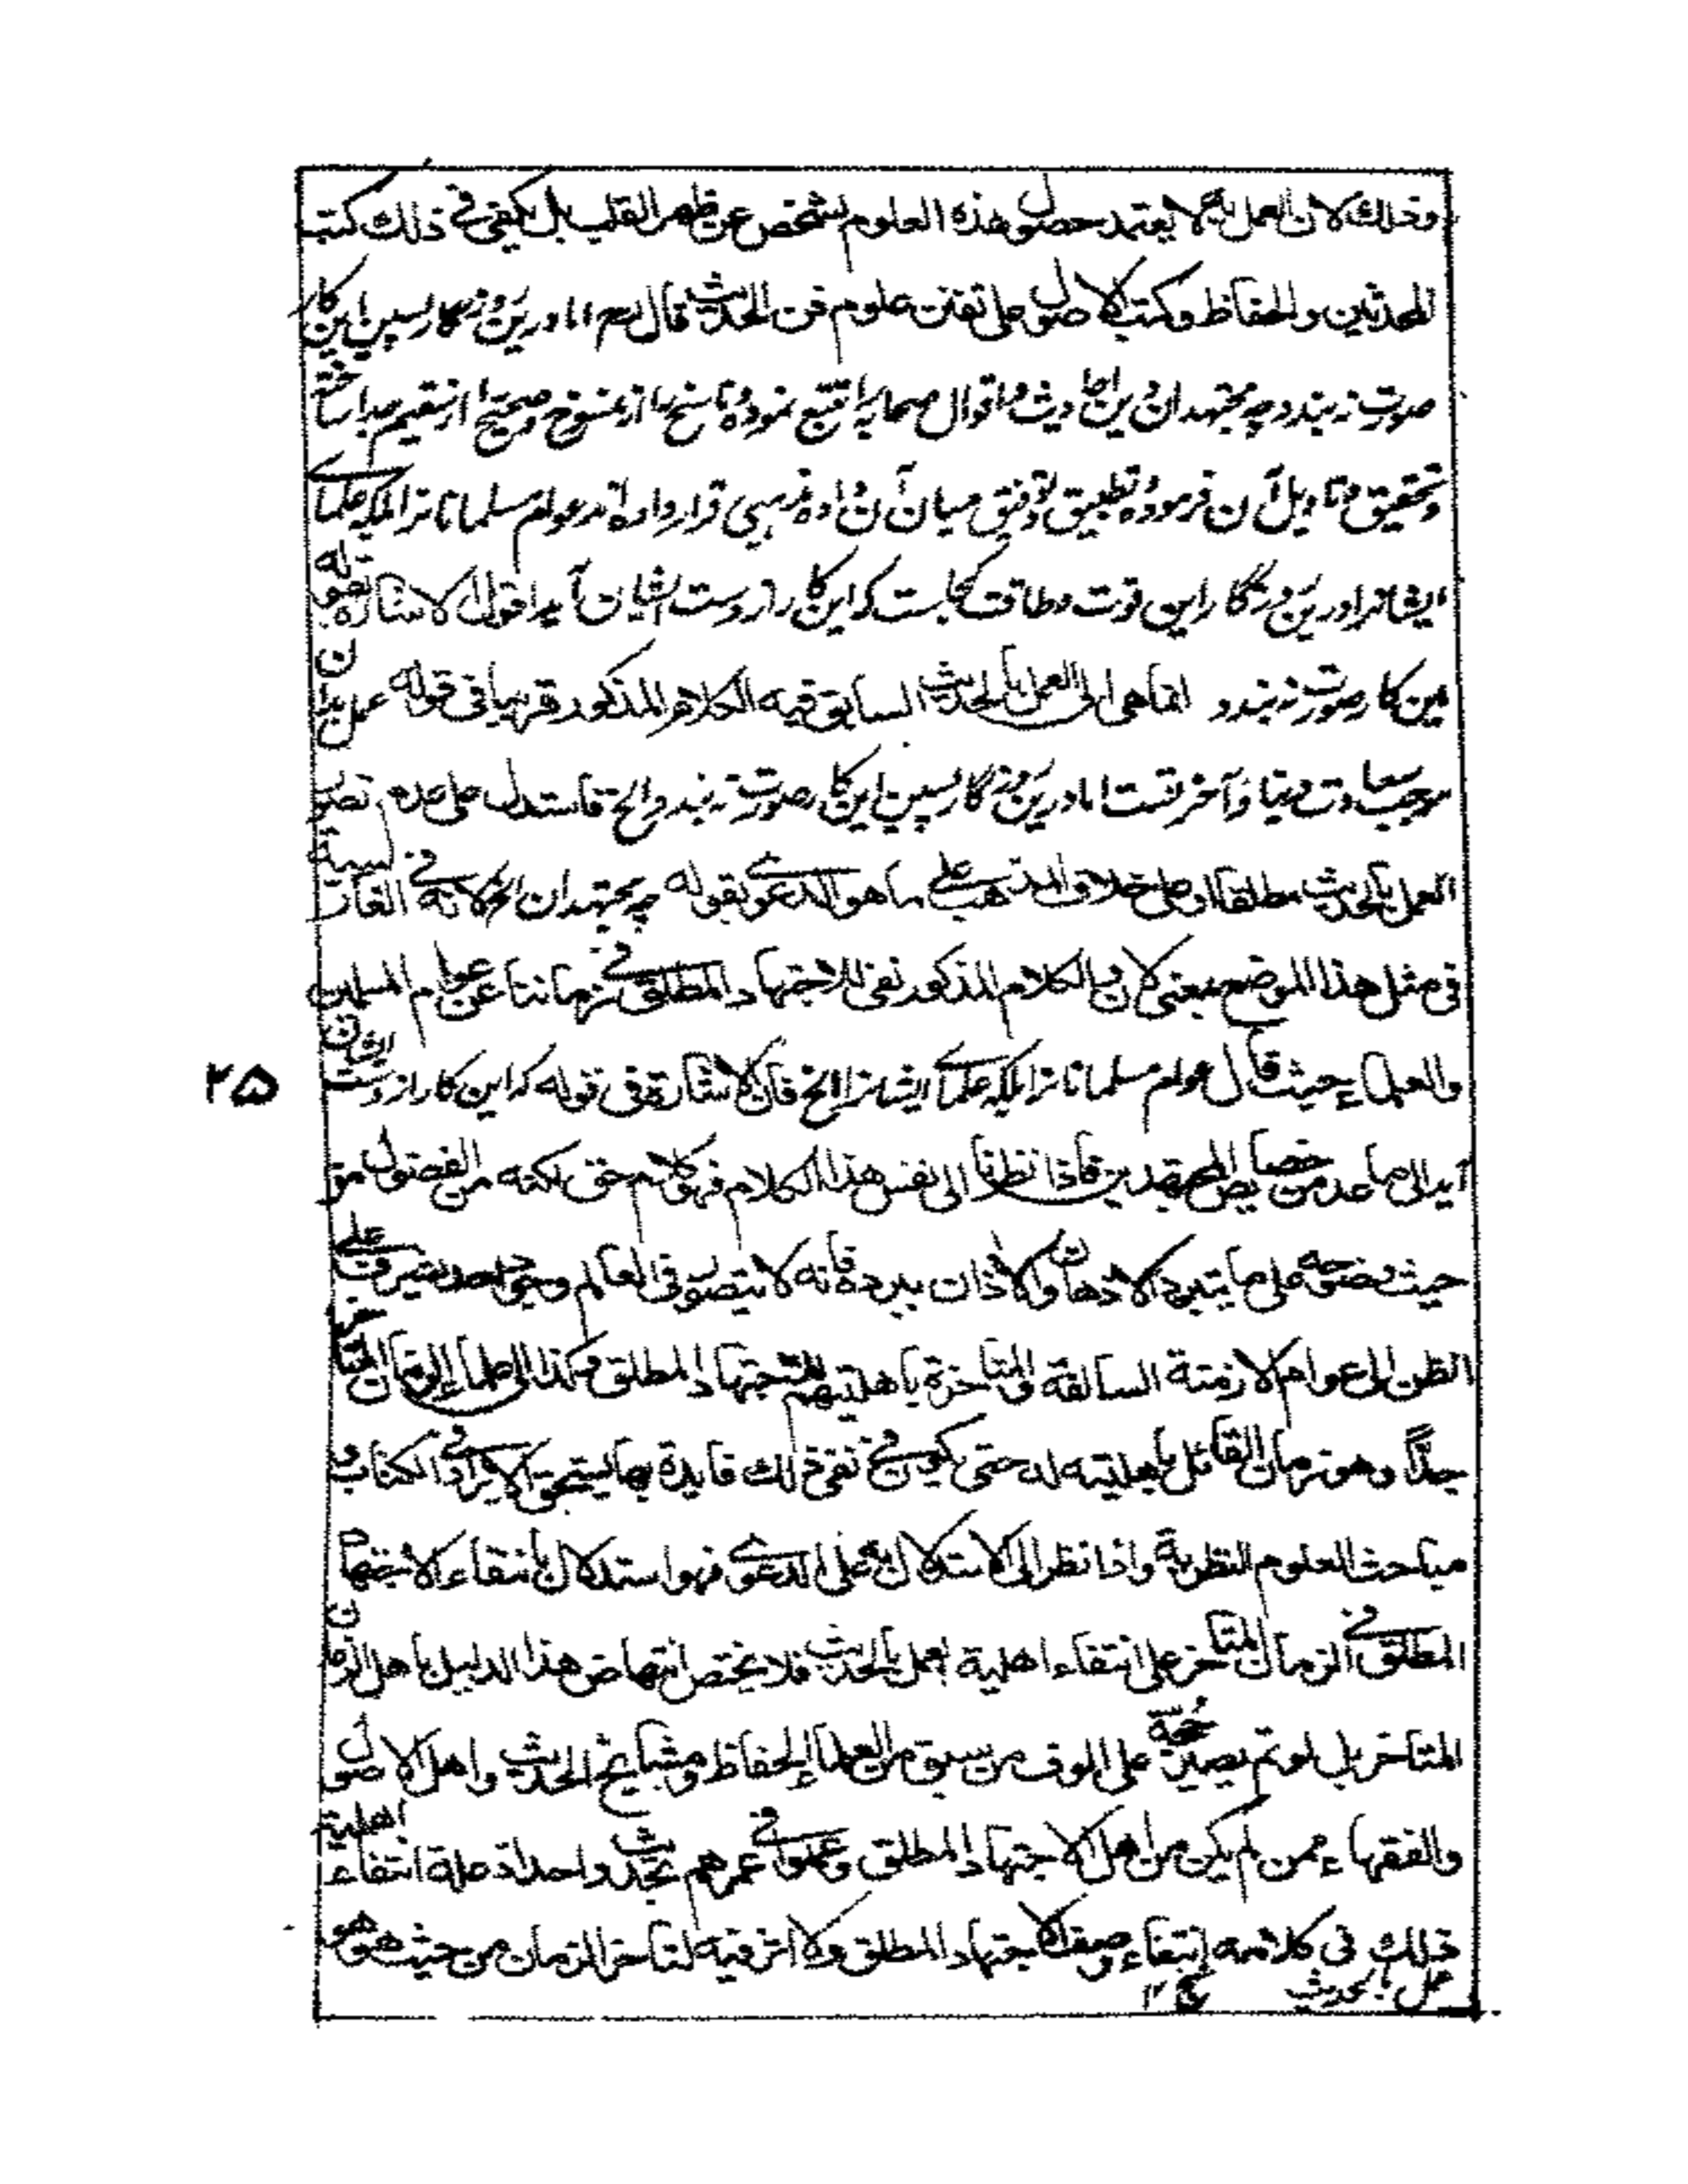 وذلك لان العمل به لا يعتمد حصول هذه العلوم لشخص عن ظهر القلب بل يكفي في ذلك كتب
المحدثين والحفاظ وكتب الاصول على تفنن علوم فن الحديث قال اما درين روزگار پسين اين كار
صورت نه بندد چه مجتهدان دين احاديث واقوال صحابه را تتبع نموده ناسخ را از منسوخ وصحيح را از سقيم جدا ساخته
وتحقيق وتاويل آن فرموده تطبيق وتوفيق ميان آن داده مذهبى قرار داده اند عوام مسلمانانرا بلكه علماى
ايشانرا درين روزگار اين قوت وطاقت كجاست كه اين كار از دست ايشان آيد اقول الاشارة بقوله
اين كار صورت نه بندد انما هى الى العمل بالحديث السابق فيه الكلام المذكور قريبا فى قوله عمل بدان
موجب سعادت دنيا وآخرتست اما درين روزگار پسين اين كار صورت نه بندد الخ فاستدل على عدم تصور
العمل بالحديث مطلقا او على خلاف المذهب على ما هو المدعى بقوله چه مجتهدان الخ لانه فى الفارسية
فى مثل هذا الموضع بمعنى لان والكلام المذكور نفى للاجتهاد المطلق فى زماننا عن عوام المسلمين
والعلماء حيث قال عوام مسلمانانرا بلكه علماى ايشانرا الخ فان الاشارة فى قوله كه اين كار از دست ايشان
آيد الى ما عد من خصايص المجتهدين فاذا نظرنا الى نفس هذا الكلام فهو كلام حق لكنه من الفضول من
حيث وضوحه على ما يتبرد الاذهان والاذان ببرده فانه لا يتصور فى العالم وجود احد يتسرف على
الظن الى عوام الازمنة السالفة والمتاخرة باهليتهم للاجتهاد المطلق وكذا الى علماء الزمان المتاخر
جدًّا وهو زمان القائل باهليته له حتى يكون فى نفى ذلك فايدة بها يستحق الايراد فى الكتاب و
مباحث العلوم النظرية واذا نظر الى الاستدلال به على المدعى فهو استدلال بانتفاء الاجتهاد
المطلق فى الزمان المتاخر على انتفاء اهلية العمل بالحديث فلا يختص انتهاض هذا الدليل باهل الزمان
المتاخر بل لو تم يصير حجة على الوف من سبق من العلماء الحفاظ ومشايخ الحديث واهل الاصول
والفقهاء ممن لم يكن من اهل الاجتهاد المطلق وعملوا فى عمرهم بحديث واحد اذ علة انتفاء اهلية
ذلك فى كلامه انتفاء وصف الاجتهاد المطلق ولا اثر فيه لتاخر الزمان من حيث هو هو
عمل بالحديث
٢٥